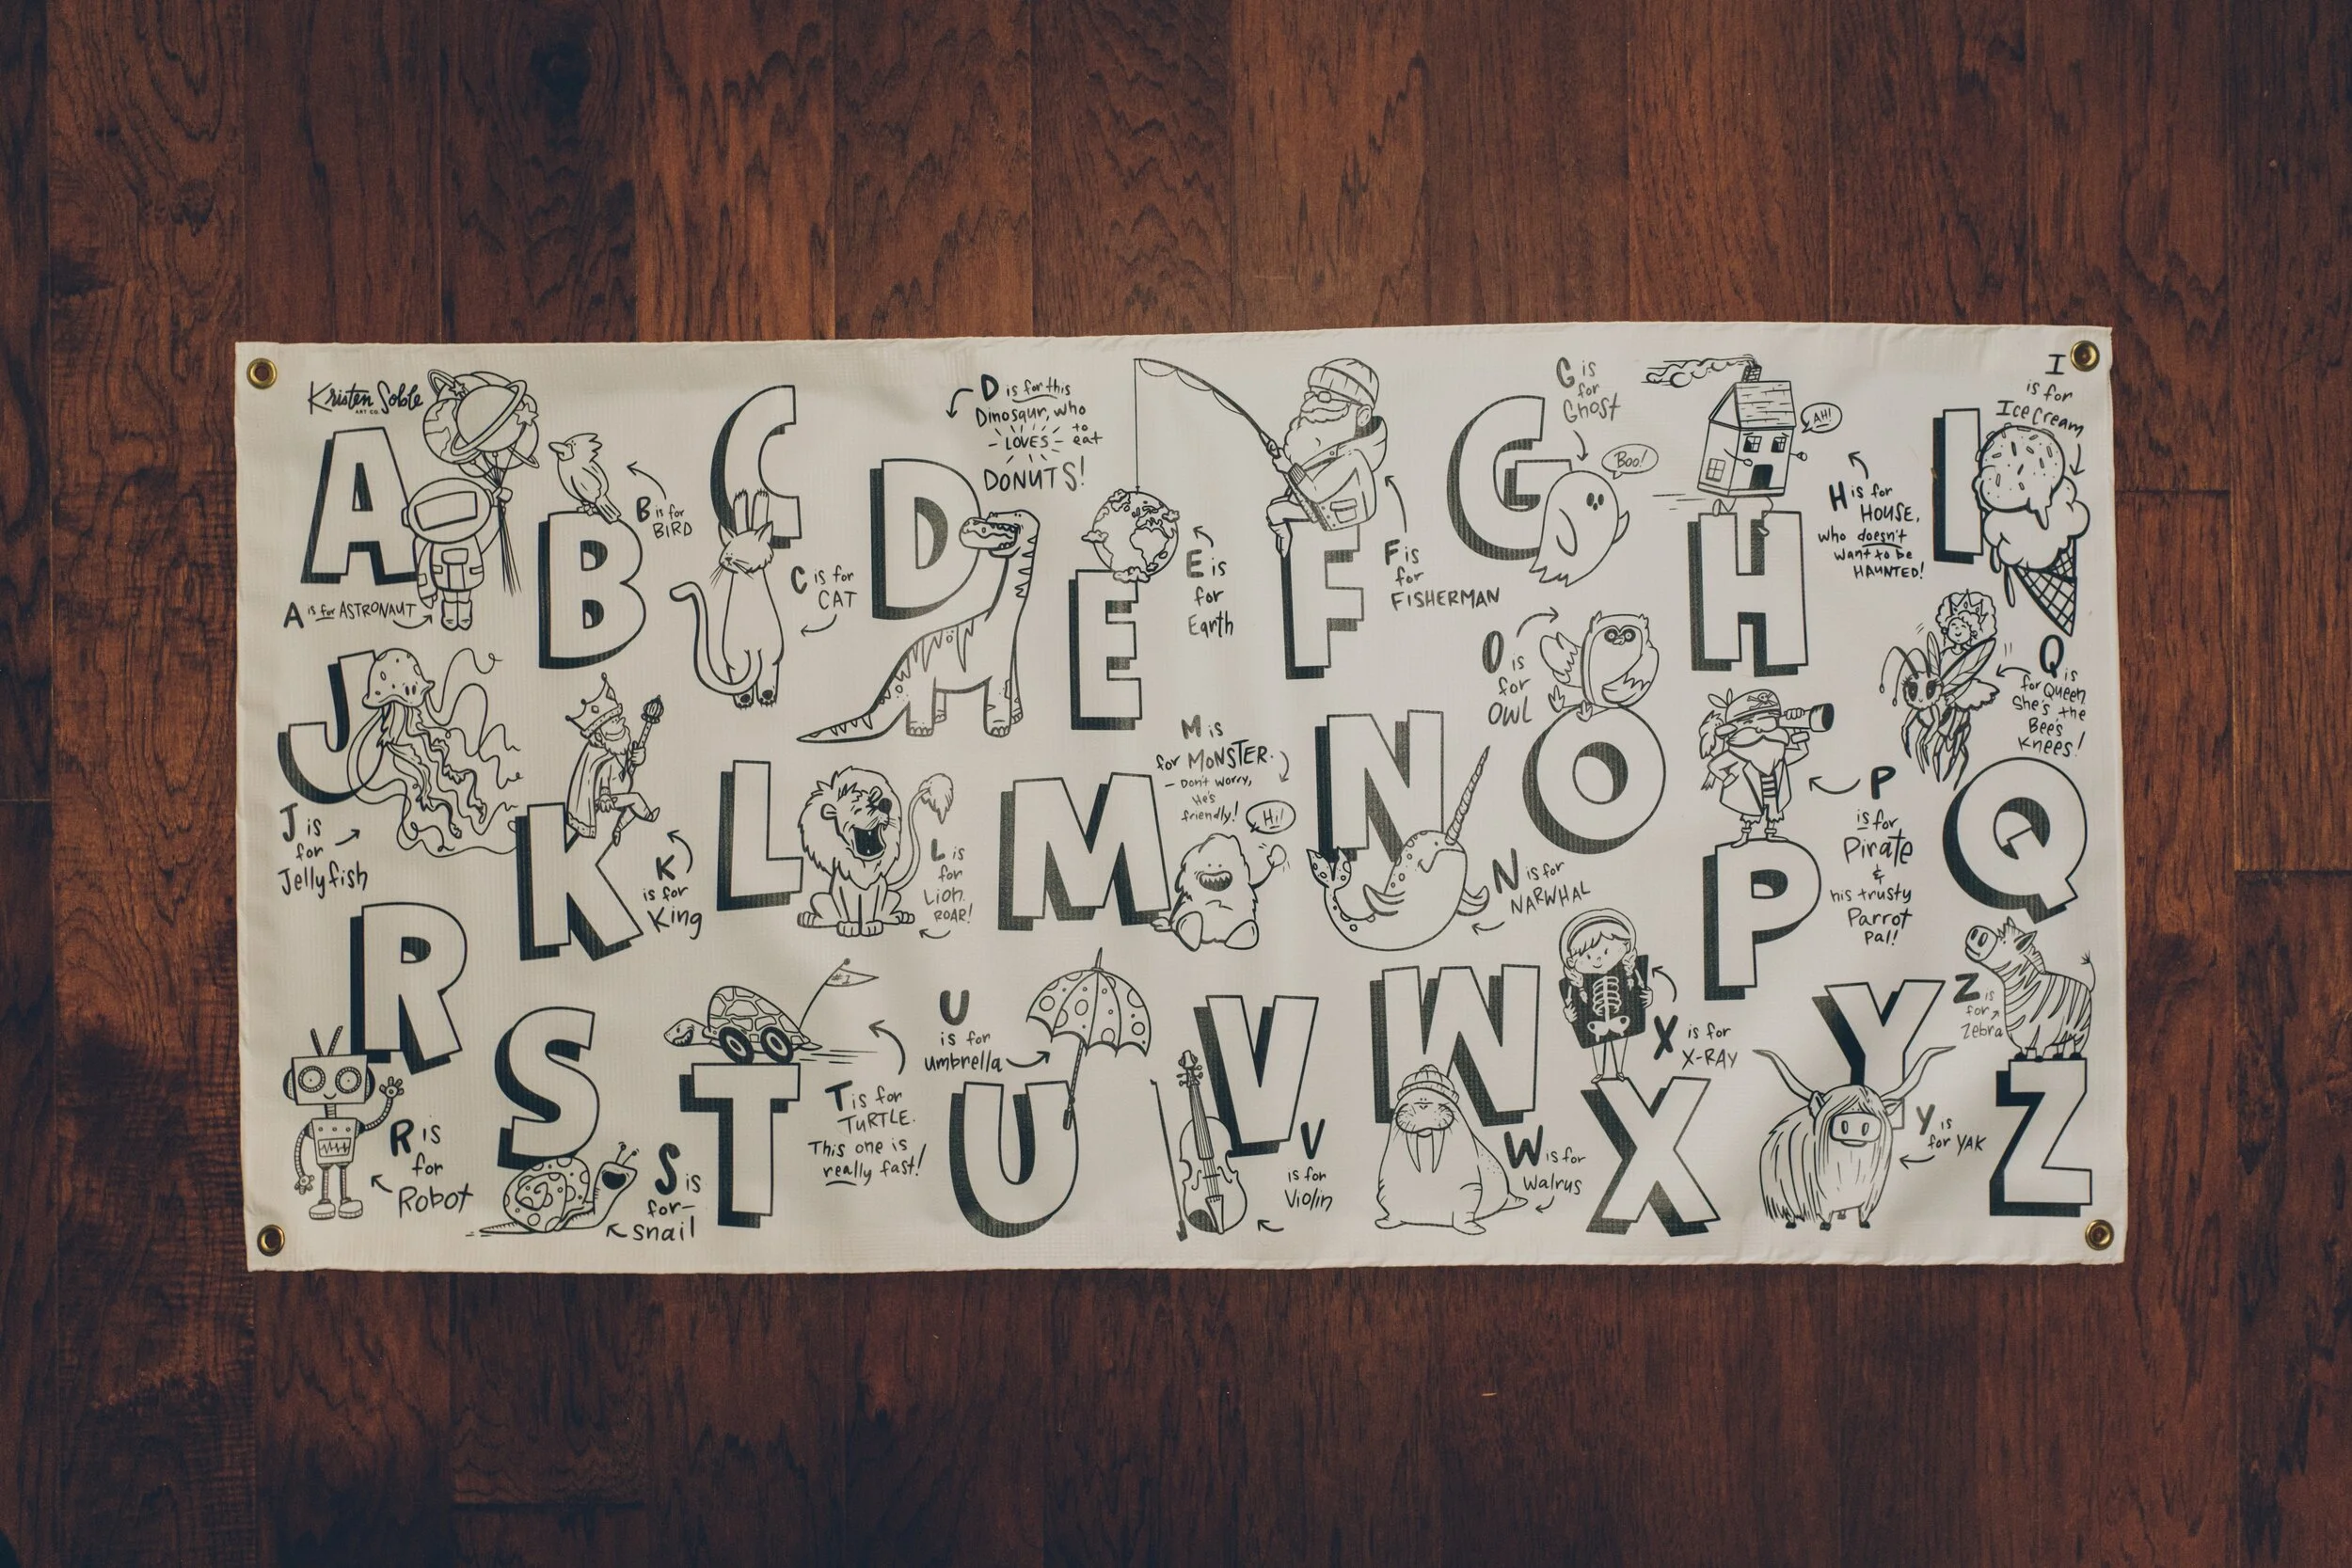 Kristen Soble
ART CO.
A
A is for ASTRONAUT
B
B is for
BIRD
C
C is for
CAT
D
D is for this
Dinosaur, who
LOVES to eat
DONUTS!
E
E is
for
Earth
F
F is
for
FISHERMAN
G
G is
for
Ghost
Boo!
H
AH!
H is for
HOUSE,
who doesn't
want to be
HAUNTED!
I
I
is for
Ice Cream
J
J is
for
Jellyfish
K
K
is for
King
L
L is
for
Lion.
ROAR!
M
M is
for MONSTER.
- Don't worry,
He's
friendly!
Hi!
N
N is for
NARWHAL
O
O is
for
OWL
P
P
is for
Pirate
&
his trusty
Parrot
Pal!
Q
Q is
for Queen
She's the
Bee's
Knees!
R
R is
for
Robot
S
S is
for
snail
T
#1
T is for
TURTLE.
This one is
really fast!
U
U
is for
umbrella
V
V
is for
Violin
W
W is for
Walrus
X
X is for
X-RAY
Y
Y is
for YAK
Z
Z is
for
Zebra